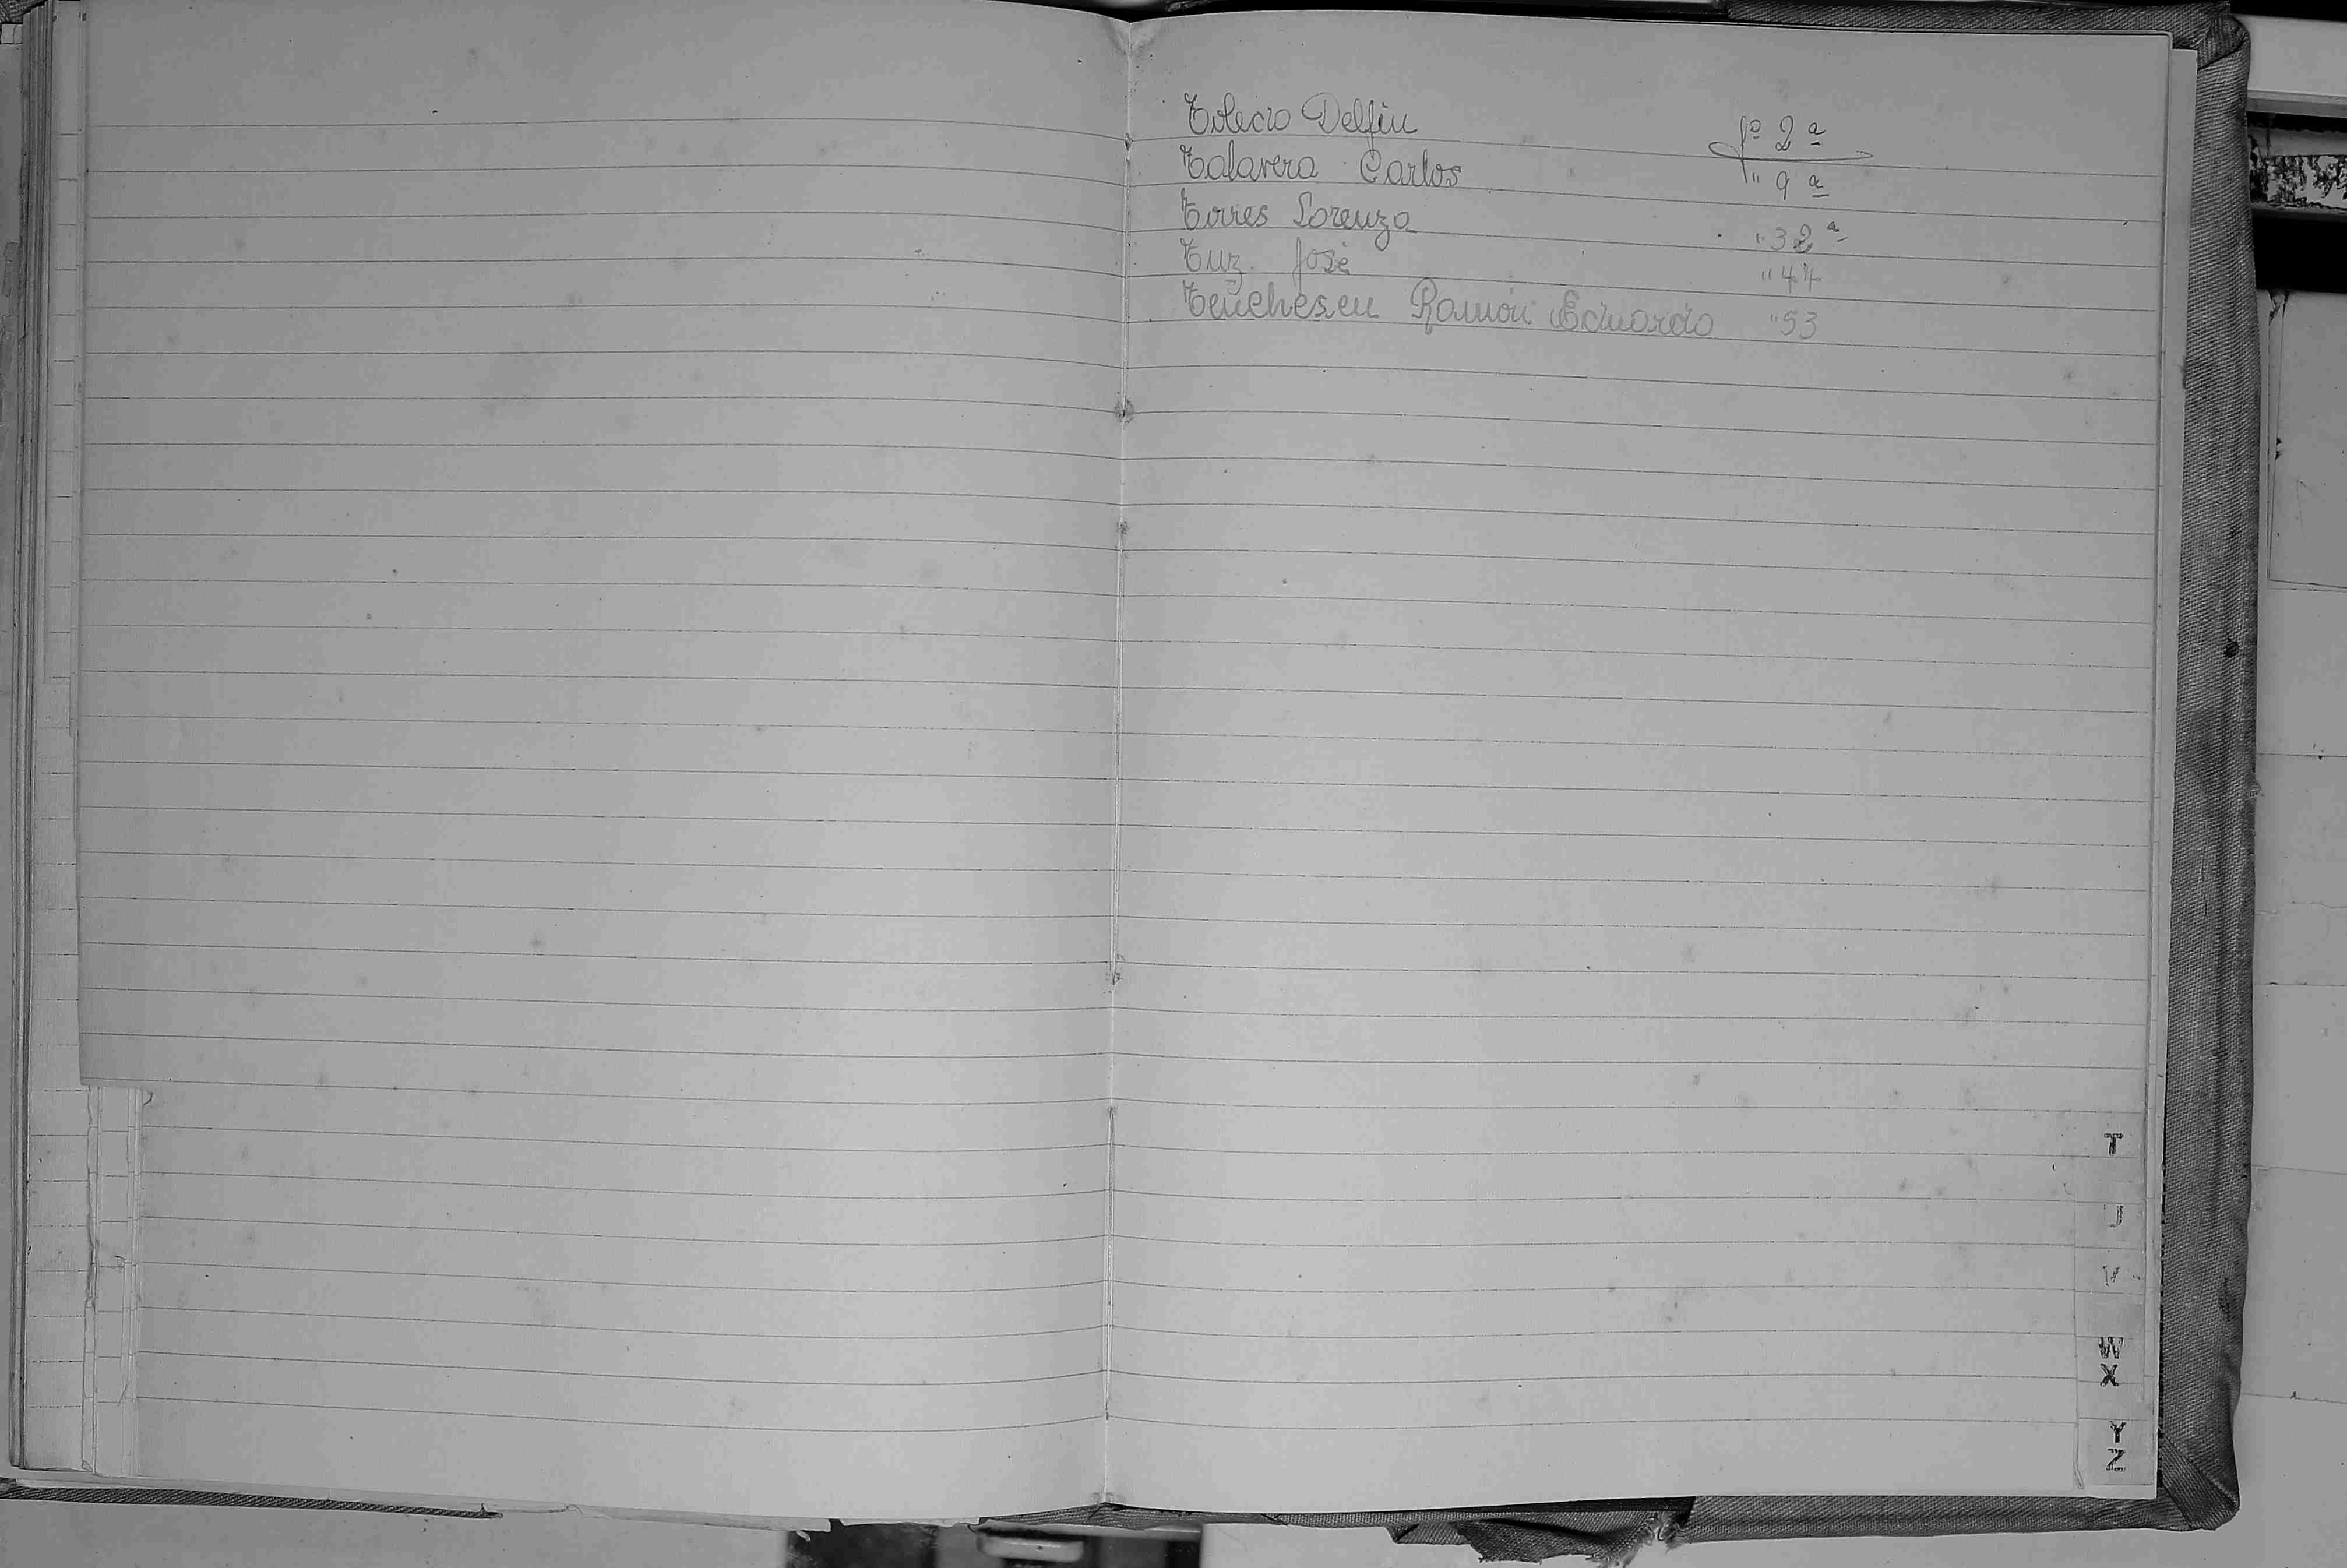 Toledo Delfin fº 2ª
Talavera Carlos " 9ª
Torres Lorenzo " 32ª
Tuz José " 47
Teuchesen Ramón Eduardo " 53
T
U
V
W
X
Y
Z